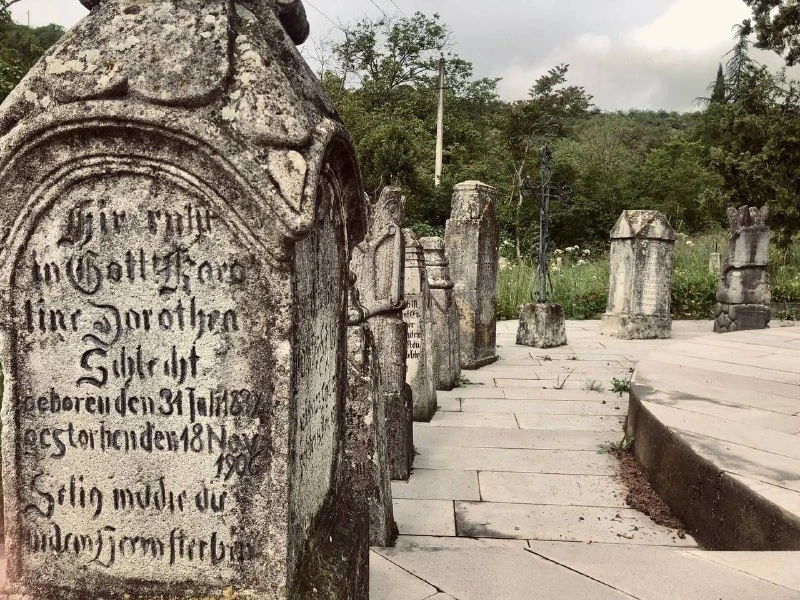 Hir ruht
in Gott Karo
line Dorothea
Schlecht
geboren den 31 Juli 18
gestorben den 18 Nov
1906
Selig müdie die
in dem Herrn sterben